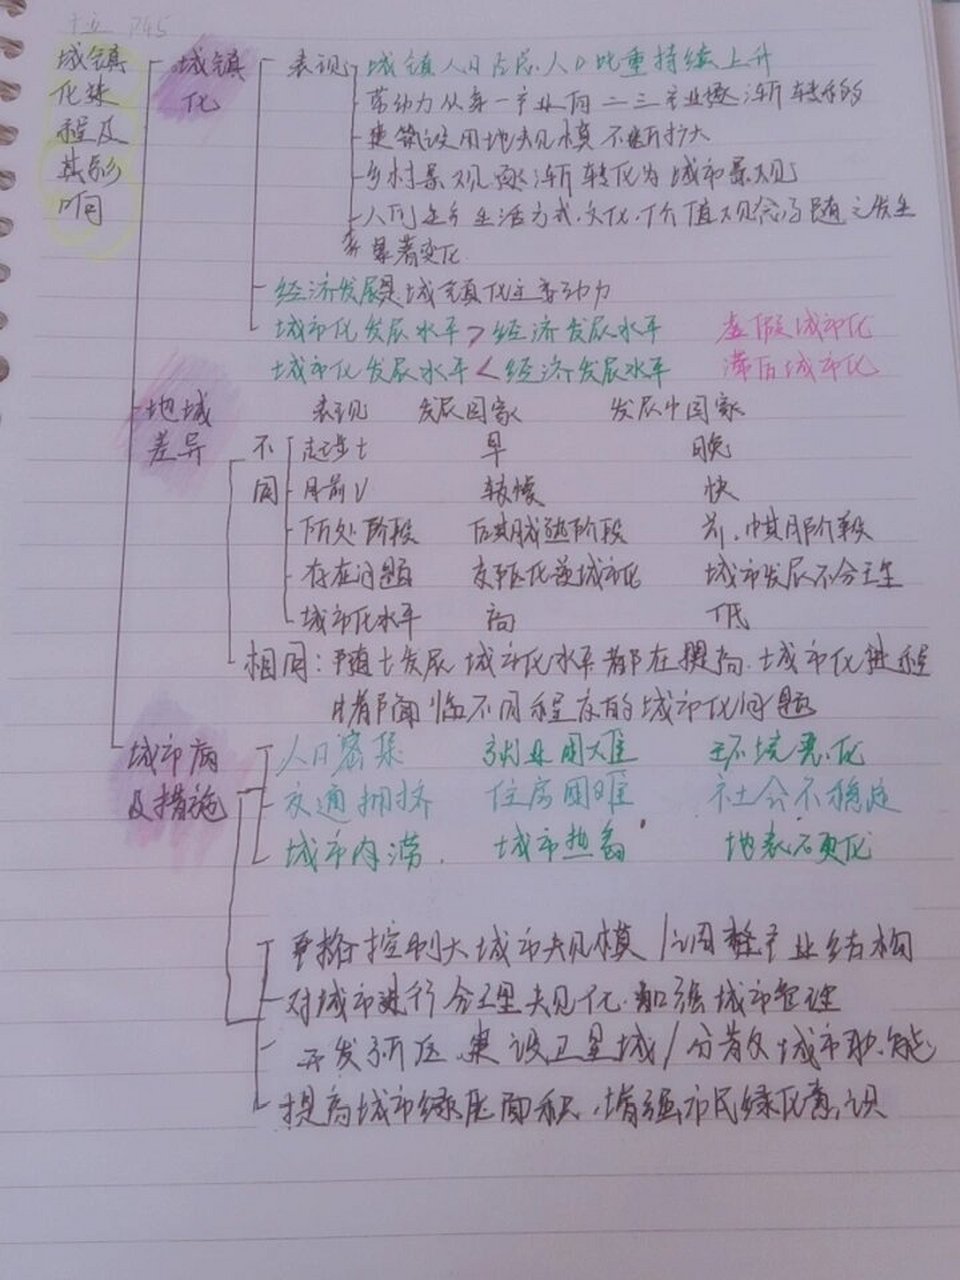 P45
城镇化进程及其影响
城镇化
表现 城镇人口占总人口比重持续上升
劳动力从第一产业向二三产业逐渐转移
建筑设用地规模不断扩大
乡村景观逐渐转化为城市景观
人们生活方式、文化、价值观念等随之发生
显著变化
经济发展是城镇化主要动力
城市化发展水平>经济发展水平 虚假城市化
城市化发展水平<经济发展水平 滞后城市化
地域差异
表现 发展国家 发展中国家
不同
起步 早 晚
目前V 较慢 快
所处阶段 后期成熟阶段 前、中期阶段
存在问题 郊区化逆城市化 城市发展不合理
城市化水平 高 低
相同:随七发展 城市化水平都在提高.城市化进程
中都面临不同程度的城市化问题
城市病及措施
人口密集 就业困难 环境恶化
交通拥挤 住房困难 社会不稳定
城市内涝. 城市热岛 地表硬化
严格控制大城市规模/调整产业结构
对城市进行合理规化.加强城市管理
开发新区 建设卫星城/分散城市职能
提高城市绿化面积,增强市民绿化意识